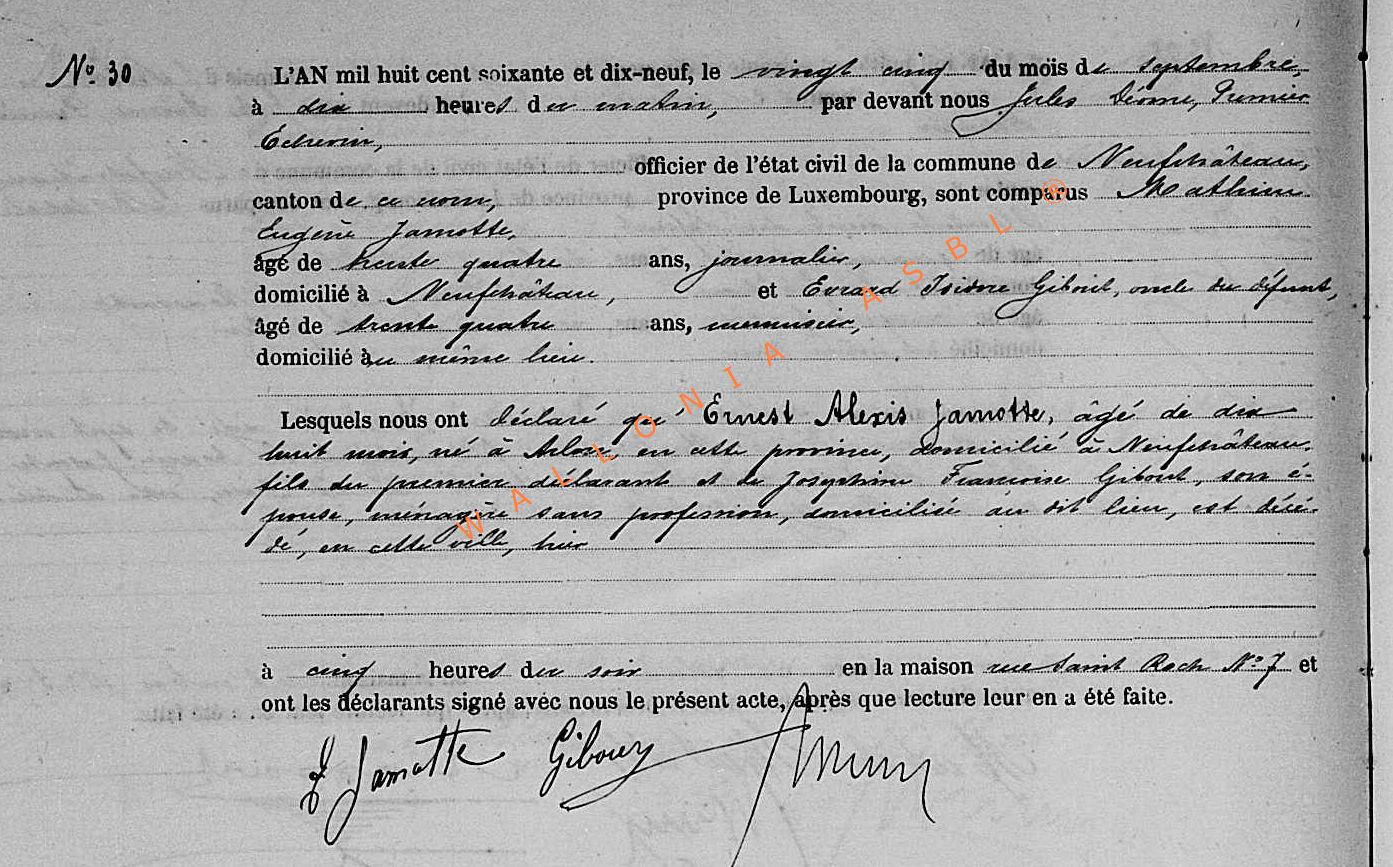 Nº 30
L'AN mil huit cent soixante et dix-neuf, le vingt cinq du mois de septembre,
à dix heures du matin, par devant nous Jules Déome, Premier
Echevin,
officier de l'état civil de la commune de Neufchâteau,
canton de ce nom, province de Luxembourg, sont comparus Mathieu
Eugène Jamotte,
âgé de trente quatre ans, journalier,
domicilié à Neufchâteau, et Evrard Isidore Gibout, oncle du défunt,
âgé de trente quatre ans, menuisier,
domicilié au même lieu.
Lesquels nous ont déclaré que Ernest Alexis Jamotte, âgé de dix
huit mois, né à Arlon, en cette province, domicilié à Neufchâteau,
fils du premier déclarant et de Joséphine Françoise Gibout, son é-
pouse, ménagère sans profession, domiciliés au dit lieu, est décé-
dé, en cette ville, hier
à cinq heures du soir en la maison rue Saint Roch Nº 7 et
ont les déclarants signé avec nous le présent acte, après que lecture leur en a été faite.
Jamotte Giboux
WALLONIA ASBL ®